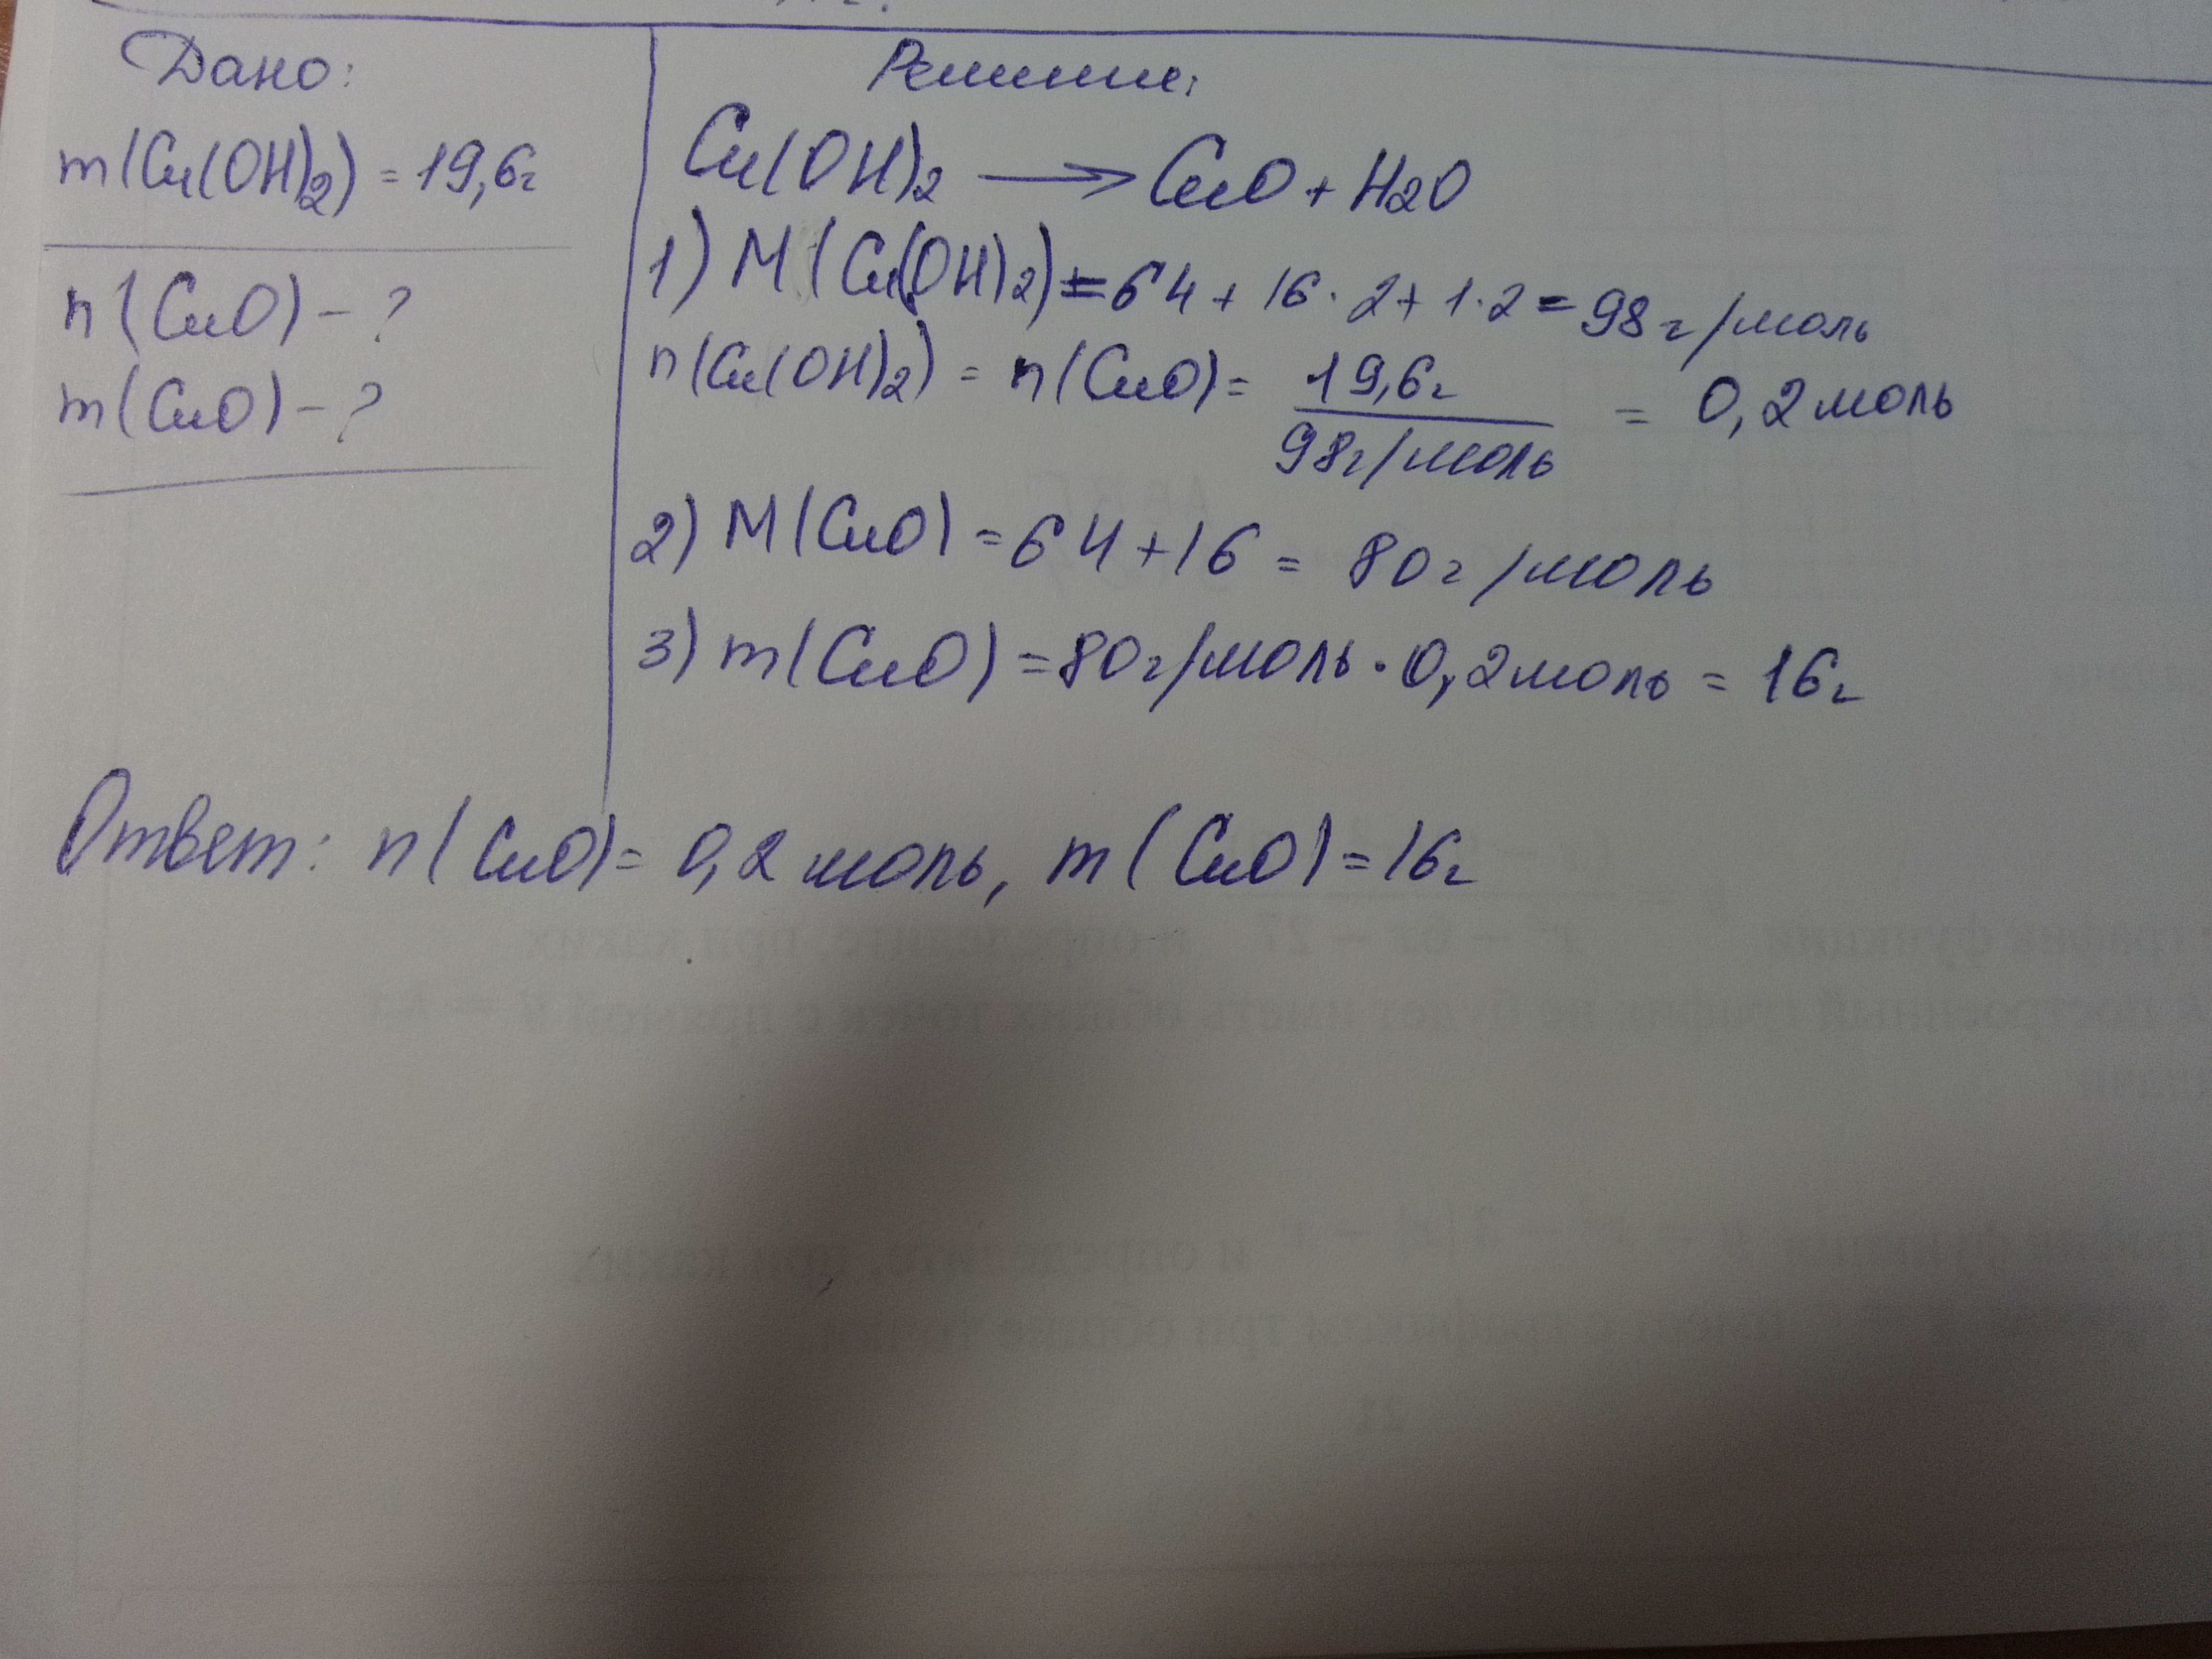 Дано:
m(Cu(OH)2) = 19,6г
n(CuO) - ?
m(CuO) - ?
Решение:
Cu(OH)2 → CuO + H2O
1) M(Cu(OH)2) = 64 + 16 · 2 + 1 · 2 = 98 г/моль
n(Cu(OH)2) = n(CuO) = 19,6г / 98г/моль = 0,2 моль
2) M(CuO) = 64 + 16 = 80 г/моль
3) m(CuO) = 80г/моль · 0,2 моль = 16г
Ответ: n(CuO) = 0,2 моль, m(CuO) = 16г